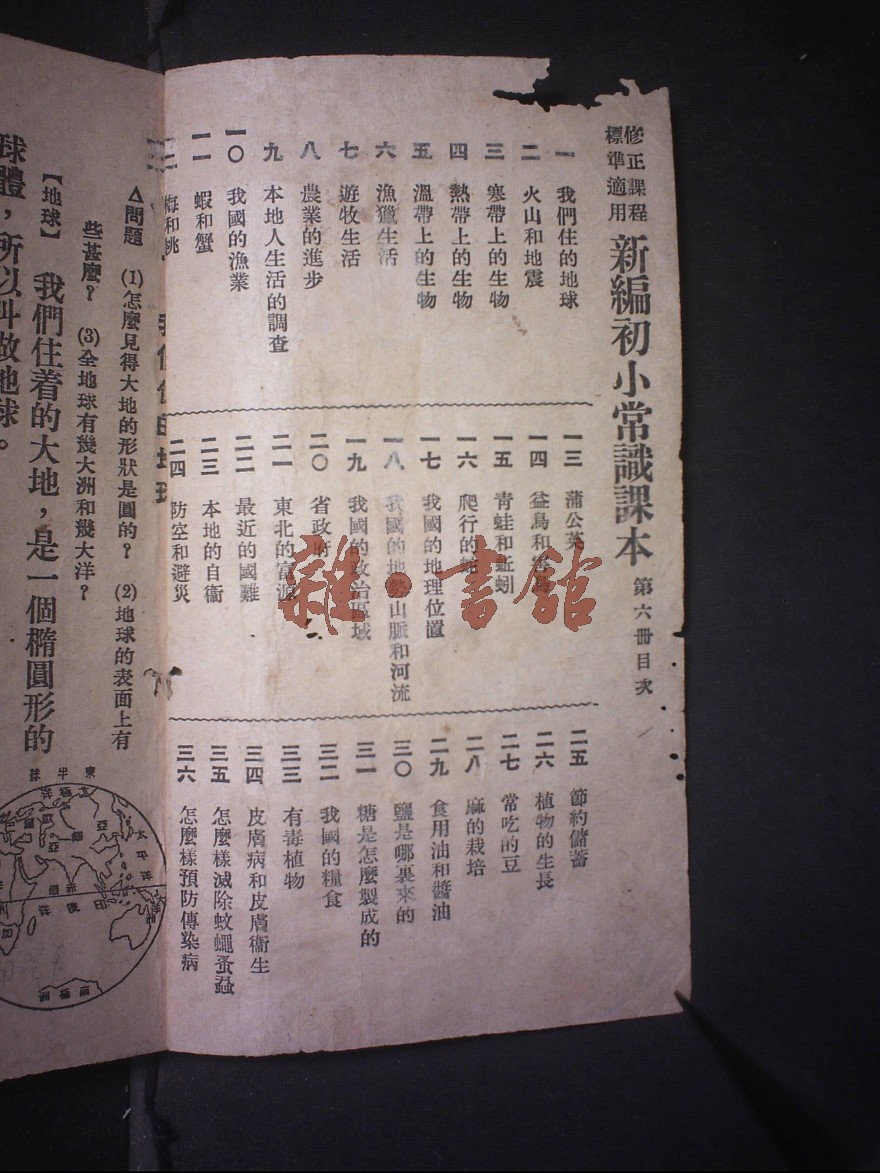 修正課程
標準適用
新編初小常識課本 第六冊目次
一 我們住的地球
二 火山和地震
三 寒帶上的生物
四 熱帶上的生物
五 溫帶上的生物
六 漁獵生活
七 遊牧生活
八 農業的進步
九 本地人生活的調查
一〇 我國的漁業
一一 蝦和蟹
一二 梅和桃
一三 蒲公英
一四 益鳥和害鳥
一五 青蛙和蚯蚓
一六 爬行的蛇
一七 我國的地理位置
一八 我國的地勢山脈和河流
一九 我國的政治區域
二〇 省政府
二一 東北的富源
二二 最近的國難
二三 本地的自衞
二四 防空和避災
二五 節約儲蓄
二六 植物的生長
二七 常吃的豆
二八 麻的栽培
二九 食用油和醬油
三〇 鹽是哪裏來的
三一 糖是怎麼製成的
三二 我國的糧食
三三 有毒植物
三四 皮膚病和皮膚衞生
三五 怎麼樣滅除蚊蠅蚤蝨
三六 怎麼樣預防傳染病
雜·書館
△問題 (1)怎麼見得大地的形狀是圓的? (2)地球的表面上有
些甚麼? (3)全地球有幾大洲和幾大洋?
【地球】 我們住着的大地,是一個橢圓形的
球體,所以叫做地球。
東半球
太平洋